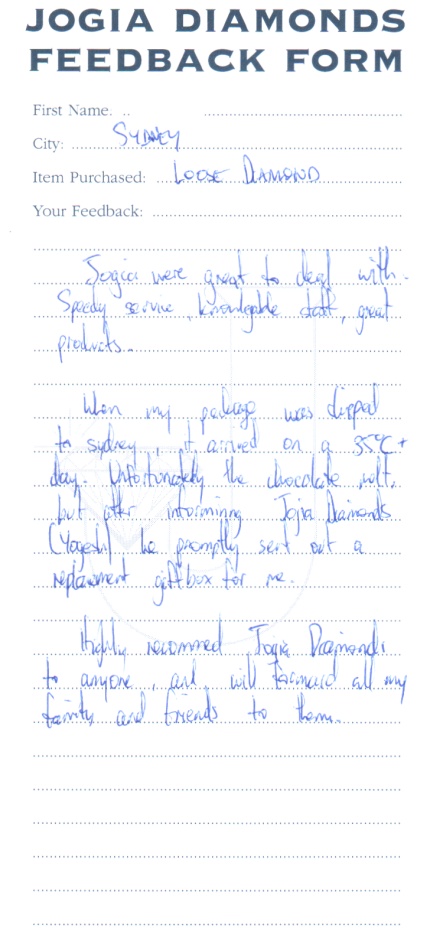 JOGIA DIAMONDS
FEEDBACK FORM
First Name:
City: SYDNEY
Item Purchased: LOOSE DIAMOND
Your Feedback:
Jogia were great to deal with.
Speedy service, knowlegable staff, great
products.
When my package was shipped
to sydney, it arrived on a 35°C +
day. Unfortunately the chocolate melt,
but after informing Jogia Diamonds
(Yogesh) he promptly sent out a
replacement giftbox for me.
Highly recommend Jogia Diamonds
to anyone, and will forward all my
family and friends to them.